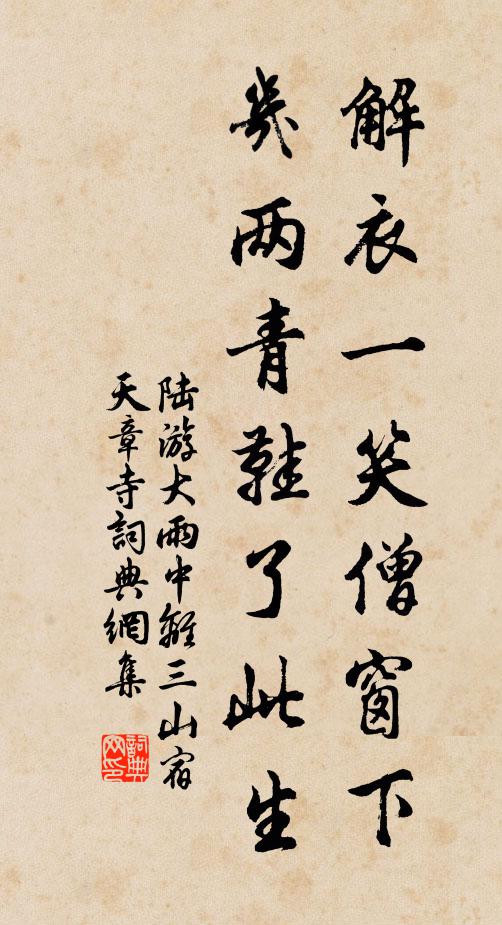 解衣一笑僧窗下
幾两青鞋了此生
陆游大雨中離三山宿
天章寺詞典網集
詞典网印